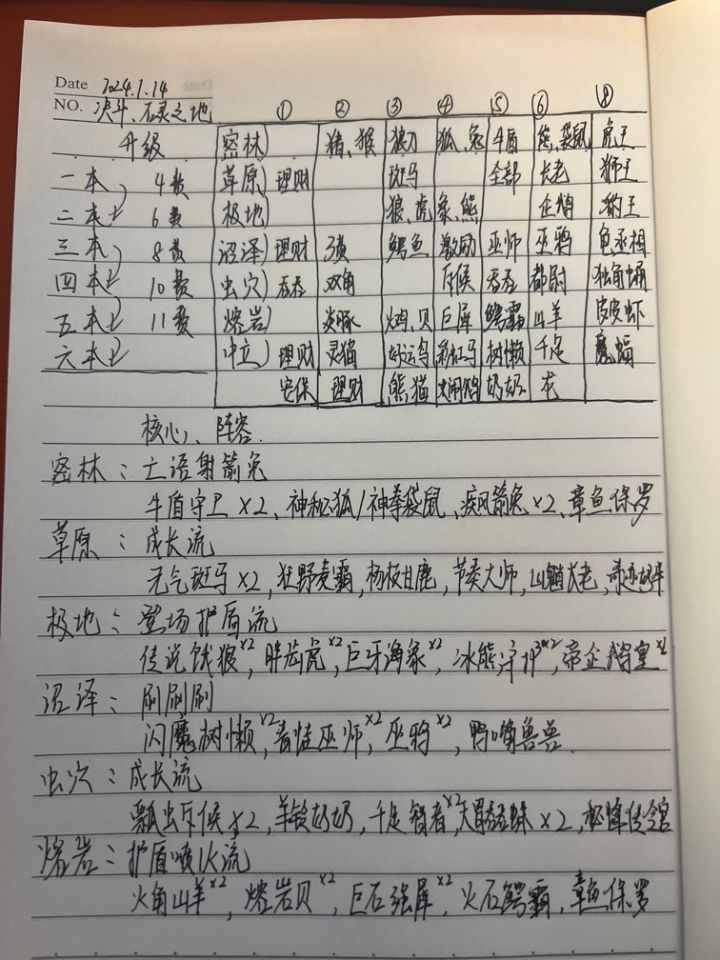 Date 2024.1.14
NO. 决斗、石灵之地 ① ② ③ ④ ⑤ ⑥ ⑧
升级 密林) 猪、猴 狼刀 狐、兔 牛盾 熊、袋鼠 虎王
一本 4费 草原) 理财 斑马 全部 长老 狮王
二本 6费 极地) 狼、虎 象、熊 企鹅 豹王
三本 8费 沼泽) 理财 鳄鱼 激励 巫师 巫鸦 龟丞相
四本 10费 虫穴) 吞吞 双角 斥候 吞吞 都尉 独角蛹
五本 11费 熔岩) 炎豚 火鸡、贝 巨犀 鳄霸 山羊 皮皮虾
六本 中立) 理财 灵猫 好运鸟 彩虹马 树懒 千足 魔蝠
安保 理财 熊猫 火鹤 奶奶 龙
核心、阵容.
密林：亡语射箭兔
牛盾守卫×2、神秘狐/神拳袋鼠、疾风箭兔×2、章鱼保罗
草原：成长流
元气斑马×2，狂野麦霸，杨枝甘鹿，节奏大师，山魈长老，奇迹奶牛
极地：登场护盾流
传说饿狼×2，胖齿虎×2，巨牙海象×2，冰熊守卫×2，帝企鹅皇×2
沼泽：刷刷刷
闪魔树懒×2，青蛙巫师×2，巫鸦×2，鸭嘴兽兽.
虫穴：成长流
瓢虫斥候×2，羊驼奶奶，千足智者×2，大胃吞吞蛛×2，秘蜂传令官
熔岩：护盾喷火流
火角山羊×2，熔岩贝×2，巨石强犀×2，火石鳄霸，章鱼保罗